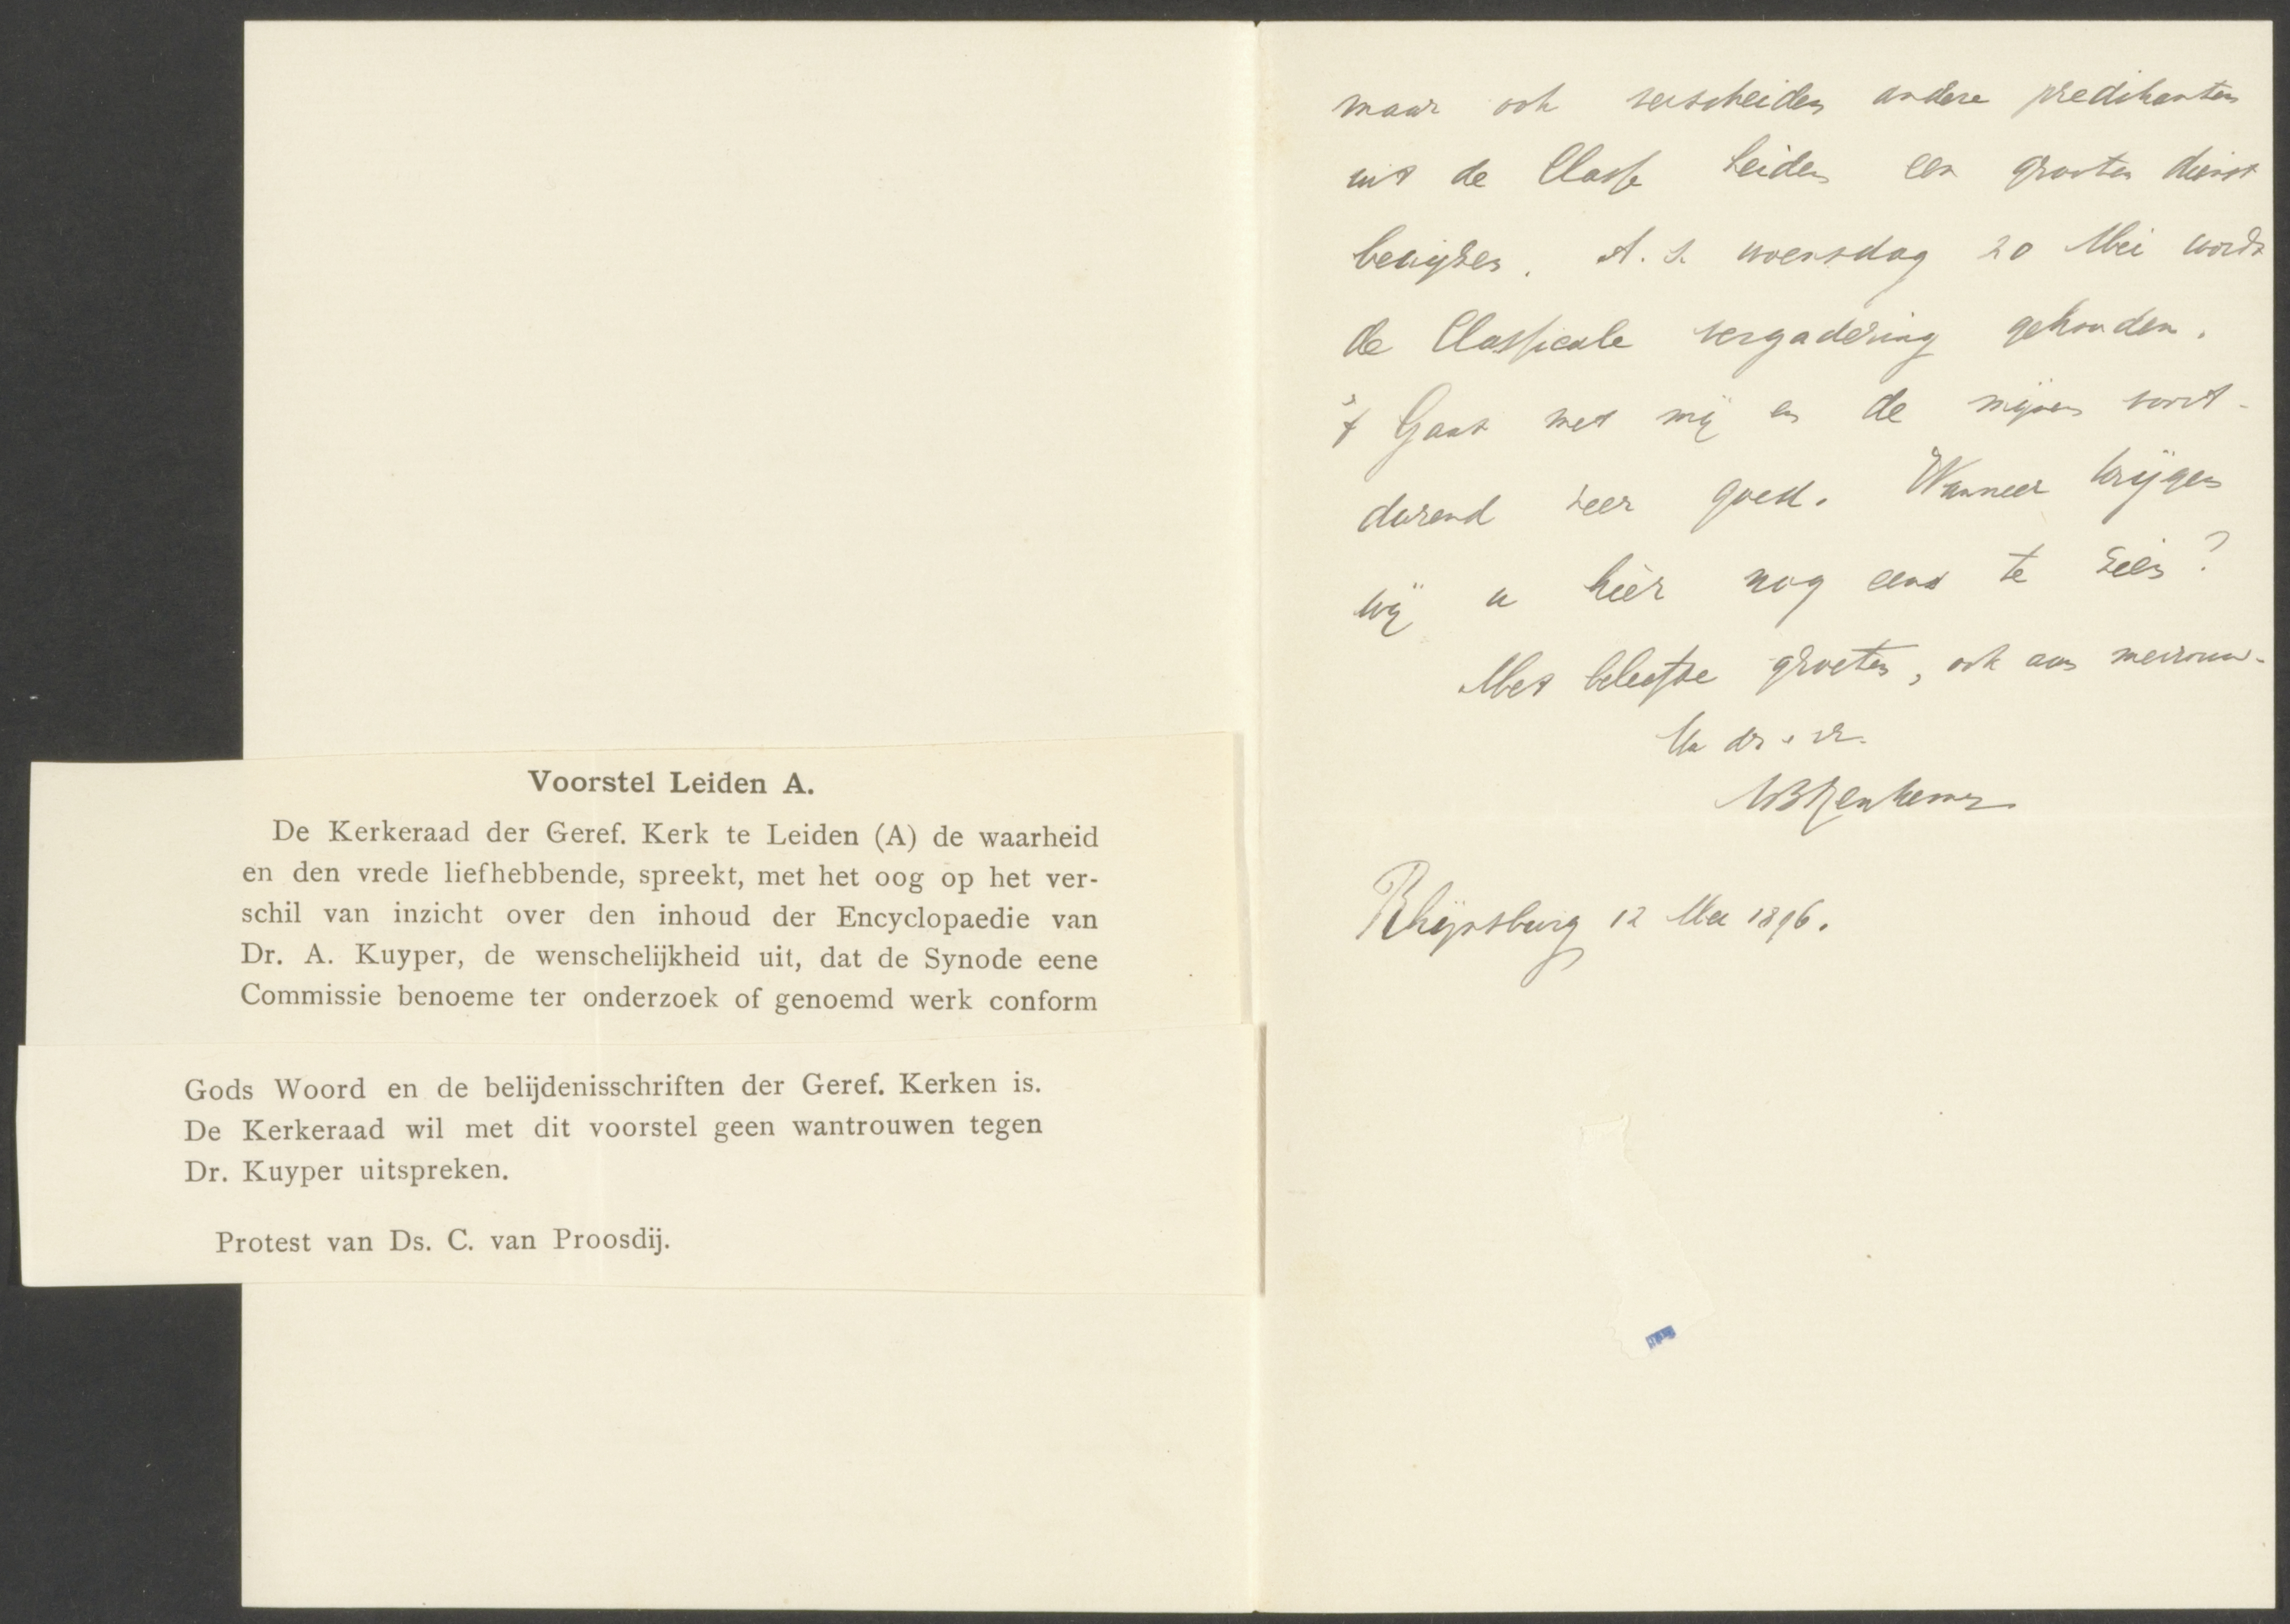 Voorstel Leiden A.
De Kerkeraad der Geref. Kerk te Leiden (A) de waarheid
en den vrede liefhebbende, spreekt, met het oog op het ver-
schil van inzicht over den inhoud der Encyclopaedie van
Dr. A. Kuyper, de wenschelijkheid uit, dat de Synode eene
Commissie benoeme ter onderzoek of genoemd werk conform
Gods Woord en de belijdenisschriften der Geref. Kerken is.
De Kerkeraad wil met dit voorstel geen wantrouwen tegen
Dr. Kuyper uitspreken.
Protest van Ds. C. van Proosdij.
maar ook verscheiden andere predikanten
uit de Classe Leiden een grooten dienst
bewijzen. A.s. woensdag 20 Mei wordt
de Classicale vergadering gehouden.
't Gaat met mij en de mijnen voort-
durend zeer goed. Wanneer krijgen
wij u hier nog eens te zien?
Met beleefde groeten, ook aan mevrouw.
Uw dr. e vr.
Rhijnsburg 12 Mei 1896.